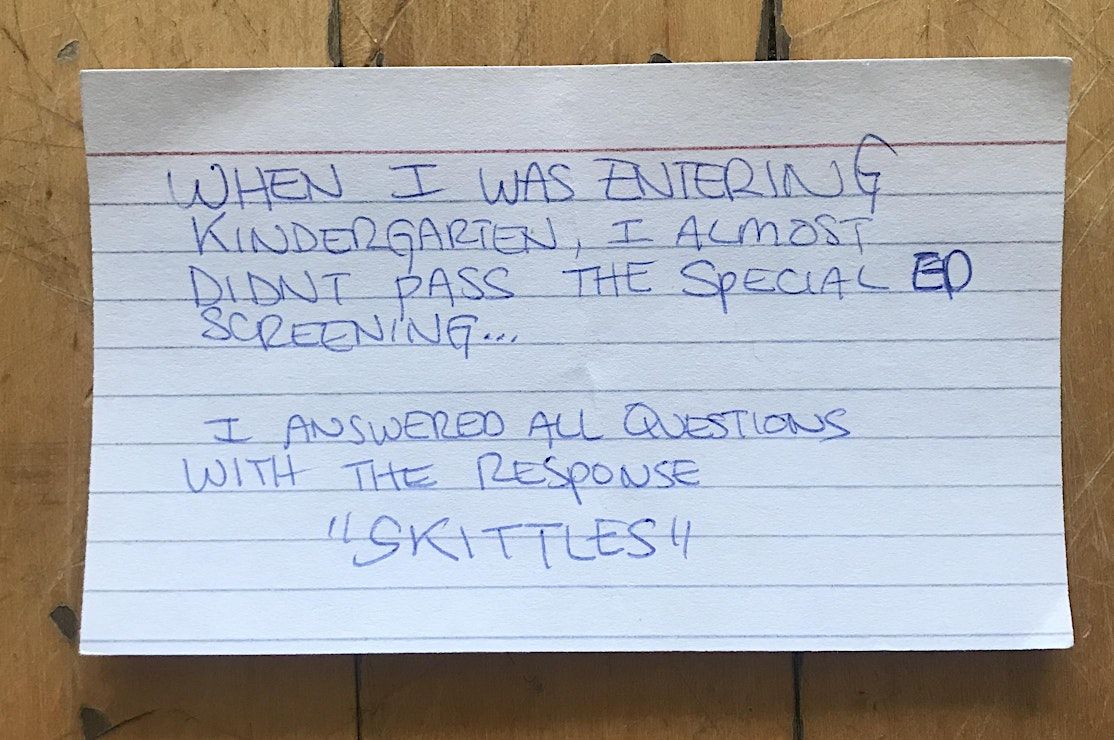 WHEN I WAS ENTERING
KINDERGARTEN, I ALMOST
DIDNT PASS THE SPECIAL ED
SCREENING...
I ANSWERED ALL QUESTIONS
WITH THE RESPONSE
"SKITTLES"